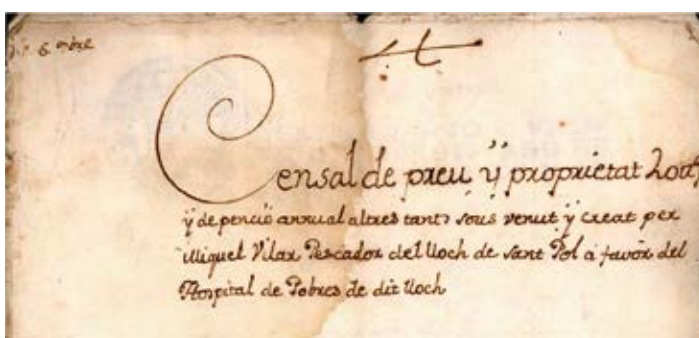 6. 9bre
Censal de preu ÿ proprietat
ÿ de penció annual altres tants sous venut ÿ creat per
Miquel Vilar Pescador del Lloch de Sant Pol á favór del
Hospital de Pobres de dit Lloch